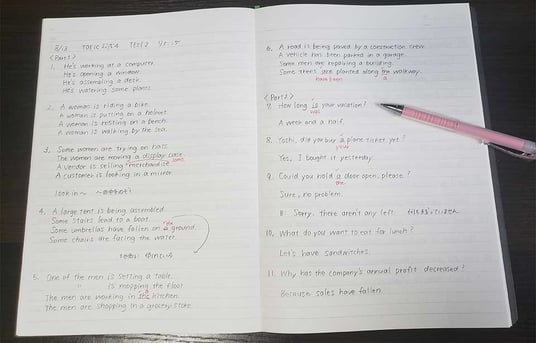 8/13 TOEIC
<Part 1>
1. He's working at a computer.
He's opening a window.
He's assembling a desk.
He's watering some plants.
2. A woman is riding a bike.
A woman is putting on a helmet.
A woman is resting on a bench.
A woman is walking by the sea.
3. Some women are trying on hats.
The women are moving a display case.
A vendor is selling merchandise.
some
A customer is looking in a mirror.
look in ~
4. A large tent is being assembled.
Some stairs lead to a boat.
Some umbrellas have fallen on a ground.
the
Some chairs are facing the water.
5. One of the men is setting a table.
〃 is mopping the floor.
The men are working in the kitchen.
a
The men are shopping in a grocery store.
6. A road is being paved by a construction crew.
A vehicle has been parked in a garage.
Some men are repairing a building.
Some trees are planted along the walkway.
have been a
<Part 2>
7. How long is your vacation?
was
A week and a half.
8. Yoshi, did you buy a plane ticket yet?
your
Yes, I bought it yesterday.
9. Could you hold a door open, please?
the
Sure, no problem.
Sorry, there aren't any left.
10. What do you want to eat for lunch?
Let's have sandwiches.
11. Why has the company's annual profit decreased?
Because sales have fallen.